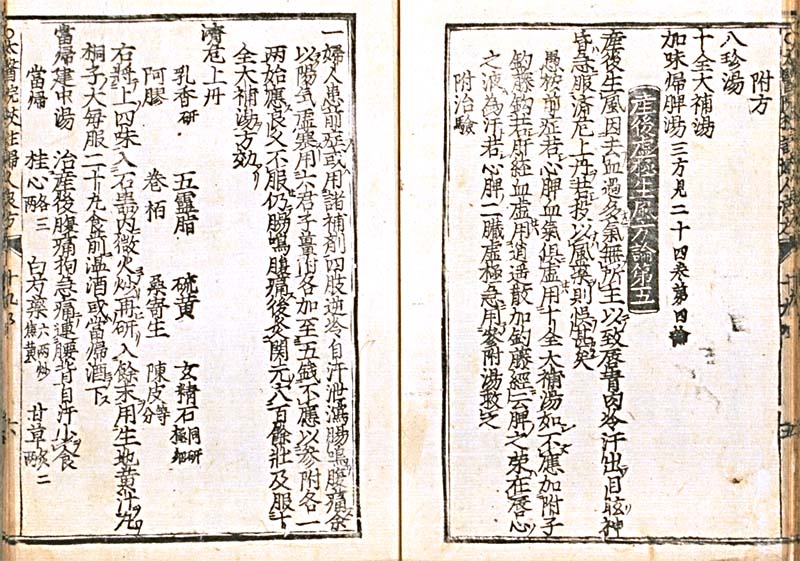 附方
八珍湯
十全大補湯
加味帰脾湯三方見二十四巻第四論
産後虚極生風方論第五
産後生風因去血過多氣無所主以致唇青肉冷汗出目眩神
昏急服済危上丹若投以風藥則悞甚矣
愚按前症若心脾血氣俱虚用十全大補湯如不應加附子
鈎藤鈎若肝経血虚用逍遥散加鈎藤經云脾之栄在唇心
之液為汗若心脾二臓虚極急用參附湯救之
附治驗
一婦人患前症或用諸補剤四肢逆冷自汗泄瀉腸鳴腹痛余
以陽氣虚寒用六君子薑附各加至五錢不應以參附各一
両始應良久不服仍腸鳴腹痛後灸関元八百餘壮及服十
全大補湯方効
済危上丹
乳香研 五靈脂 硫黄 玄精石同研極細
阿膠 巻栢 桑寄生 陳皮等分
右將上四味入石器内微火炒再研入餘末用生地黄汁丸
桐子大毎服二十丸食前温酒或當帰酒下
當帰建中湯 治産後腹痛拘急痛連腰背自汗少食
當帰 桂心各三両 白芍藥六両炒焦黄 甘草炙二両